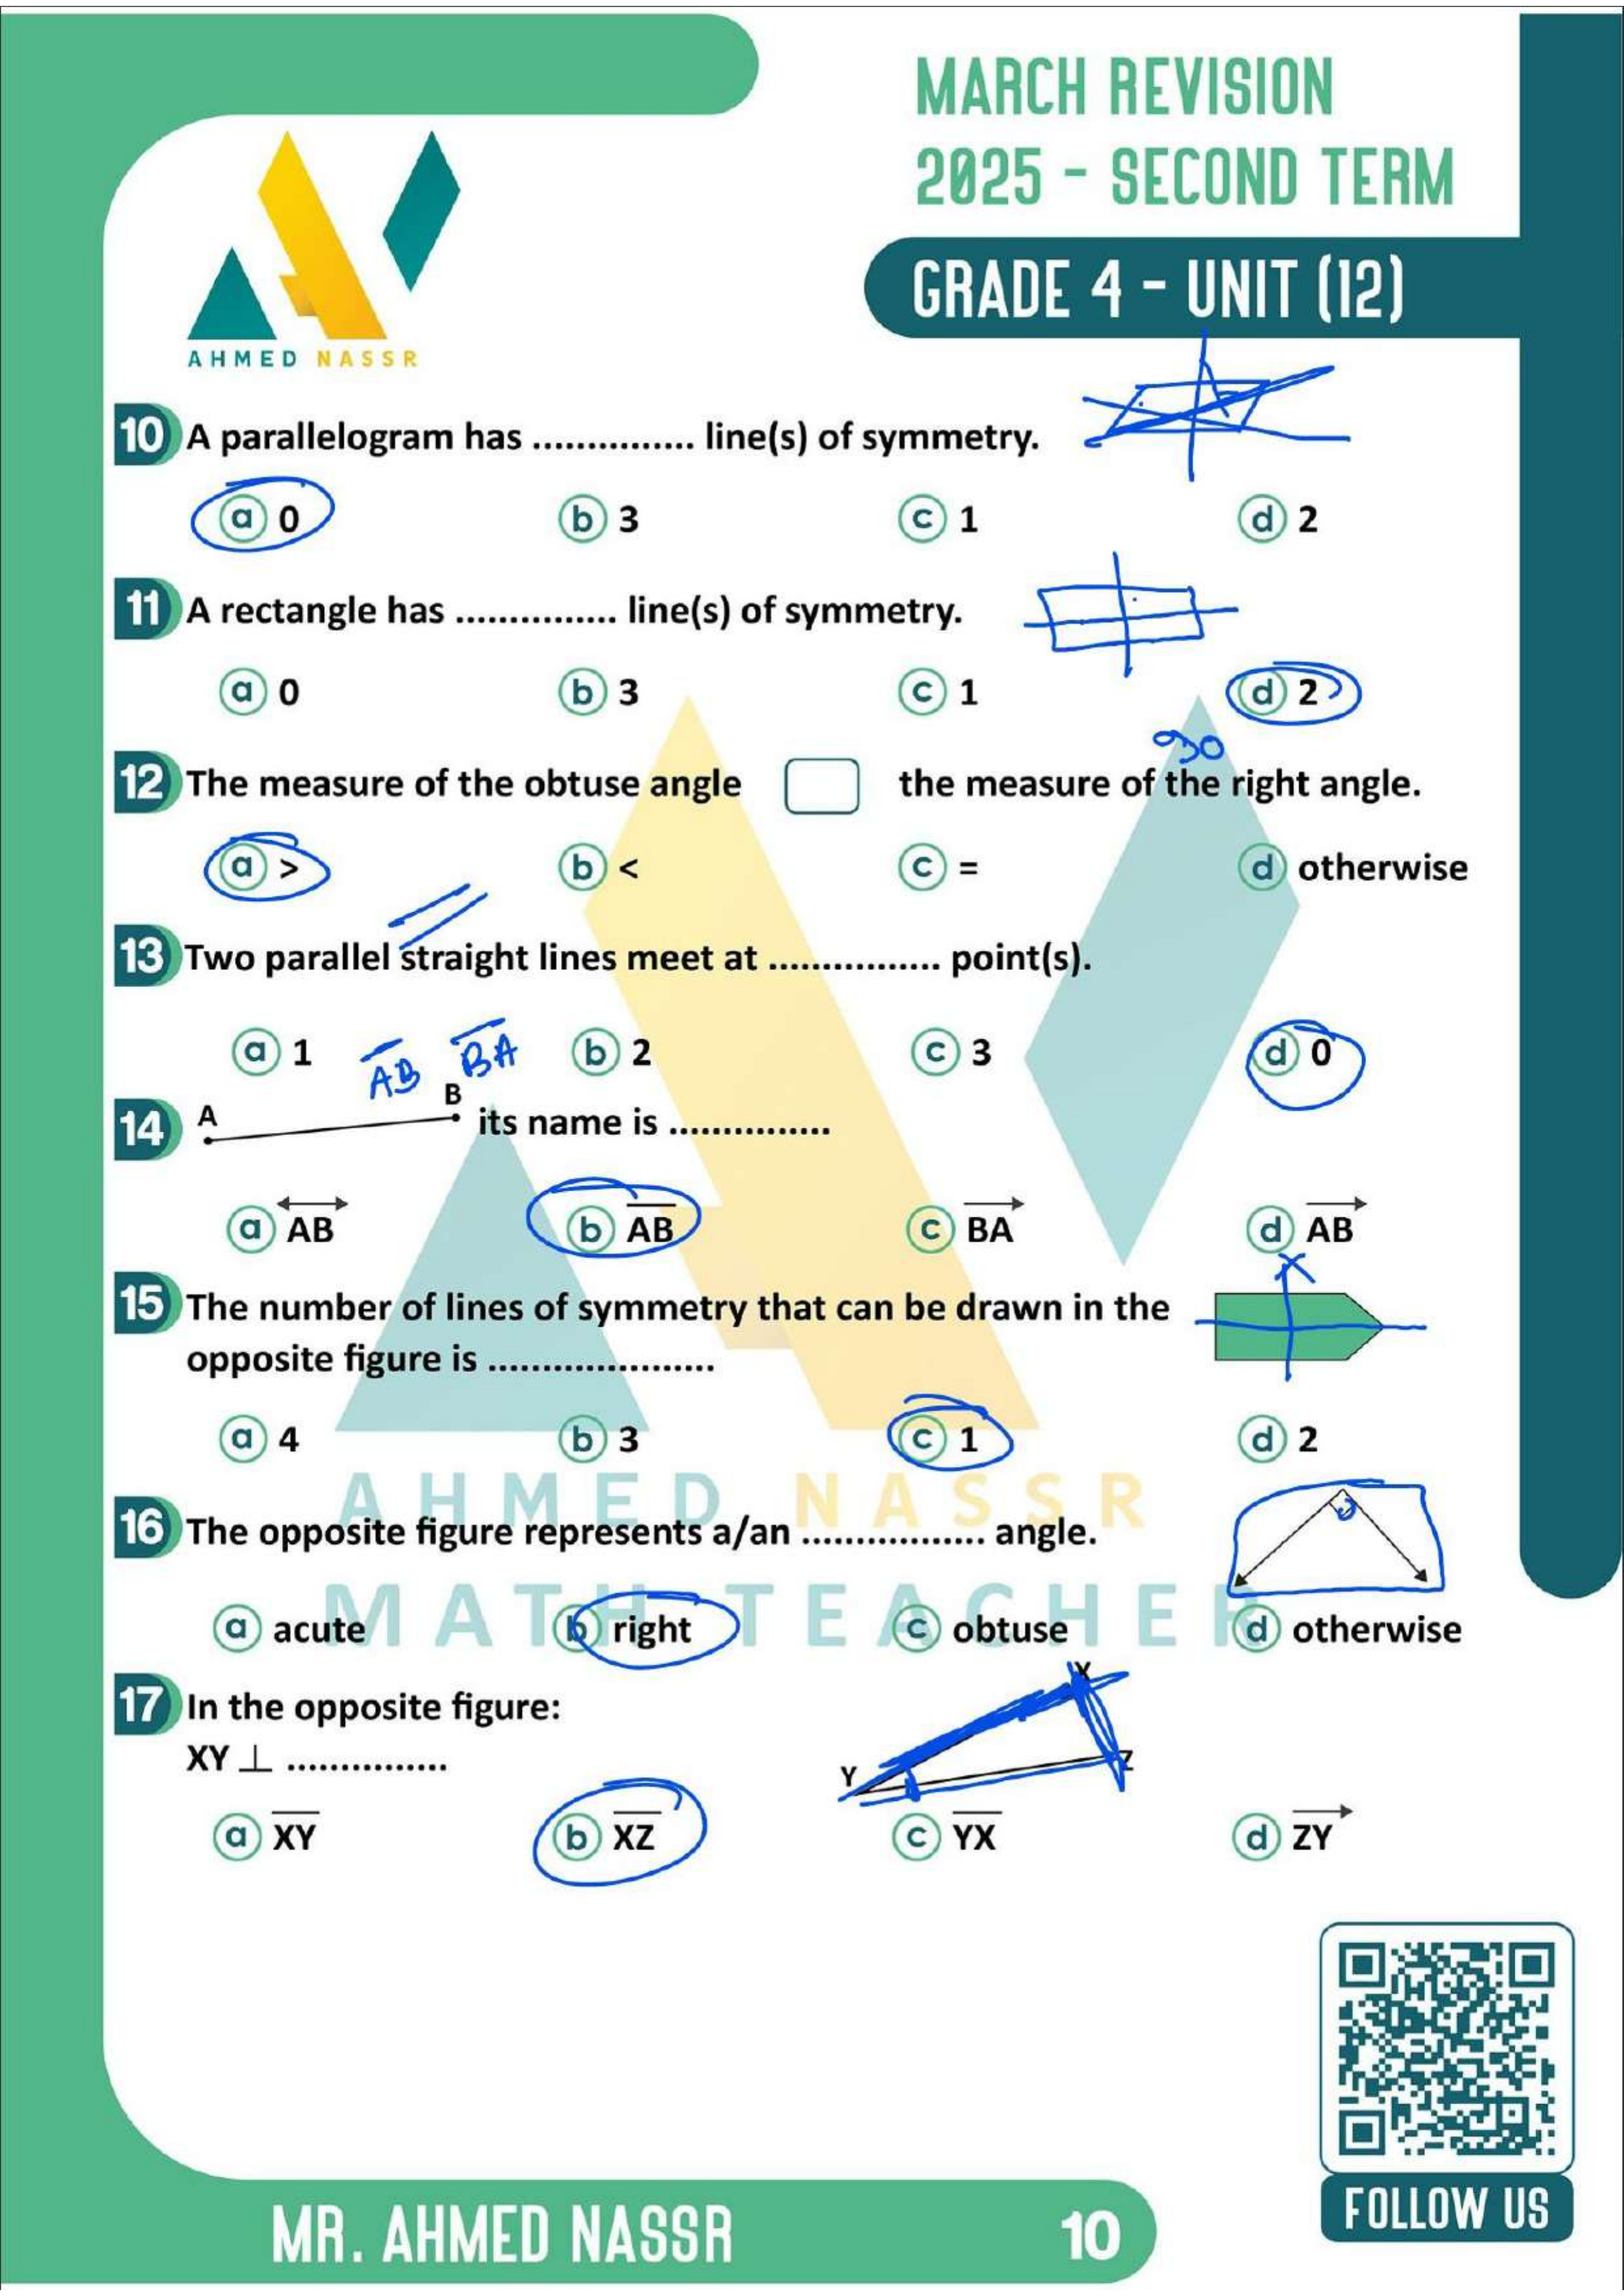 MARCH REVISION
2025 - SECOND TERM
GRADE 4 - UNIT (12)
AHMED NASSR
10 A parallelogram has ............... line(s) of symmetry.
a 0 b 3 c 1 d 2
11 A rectangle has ............... line(s) of symmetry.
a 0 b 3 c 1 d 2
90
12 The measure of the obtuse angle the measure of the right angle.
a > b < c = d otherwise
13 Two parallel straight lines meet at ................ point(s).
a 1 b 2 c 3 d 0
AB BA
14 A B its name is ...............
a AB b AB c BA d AB
15 The number of lines of symmetry that can be drawn in the
opposite figure is .....................
a 4 b 3 c 1 d 2
AHMED NASSR
16 The opposite figure represents a/an ................. angle.
MATH TEACHER
a acute b right c obtuse d otherwise
17 In the opposite figure:
X
XY ⊥ ...............
Y Z
a XY b XZ c YX d ZY
MR. AHMED NASSR
10
FOLLOW US